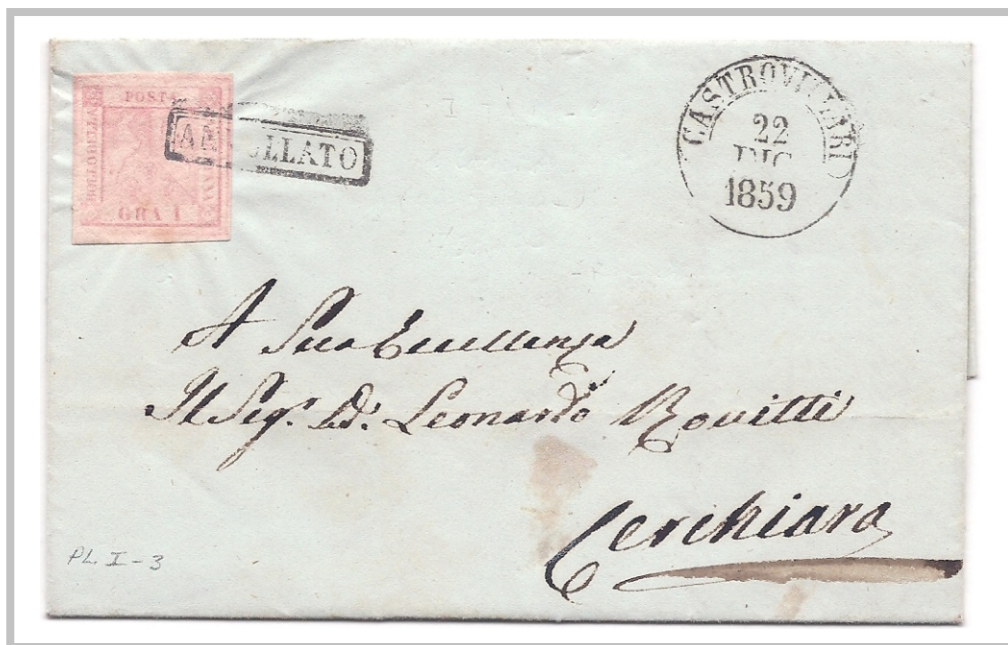 POSTA
BOLLO DELLA
GRA 1
ANNULLATO
CASTROVILLARI
22
DIC
1859
A Sua Eccellenza
Il Sigr. Dn. Leonardo Rovitti
Cerchiara
PL. I-3